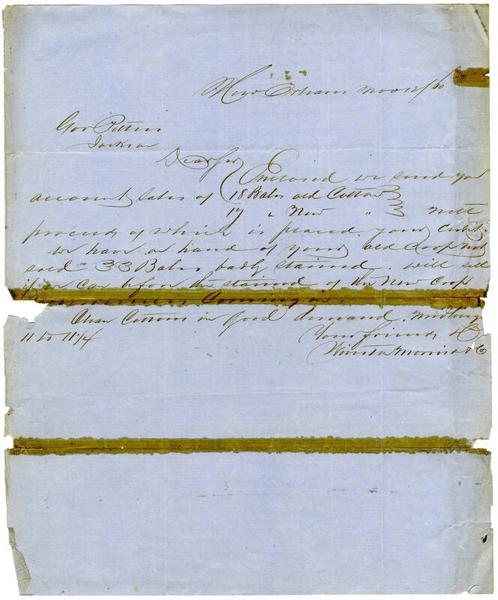 New Orleans Nov
Gov Pettus
Jackson
Dear Sir Enclosed we send you
account sales of 18 Bales old Cotton
17 " New " nett
proceeds of which is placed your credit
we have on hand of your old crop not
sold 33 Bales badly stained. will sell
if we can before the stained of the New Crop
coming in
Clean Cottons in good demand. Midling
11 to 11 1/4
Your friends